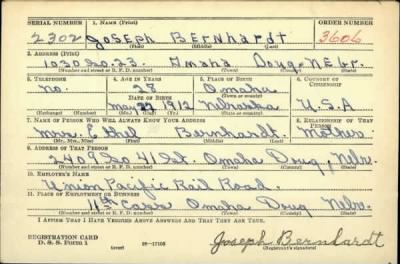 SERIAL NUMBER 1. NAME (Print) ORDER NUMBER
2302 Joseph Bernhardt 3606
(First) (Middle) (Last)
2. ADDRESS (Print)
1030 So. 23. Omaha Doug. Nebr.
(Number and street or R. F. D. number) (Town) (County) (State)
3. TELEPHONE 4. AGE IN YEARS 5. PLACE OF BIRTH 6. COUNTRY OF CITIZENSHIP
no. 28 Omaha
DATE OF BIRTH (Town or county)
May 22 1912 Nebraska U.S.A
(Exchange) (Number) (Mo.) (Day) (Yr.) (State or country)
7. NAME OF PERSON WHO WILL ALWAYS KNOW YOUR ADDRESS 8. RELATIONSHIP OF THAT PERSON
Mrs. Ethel Bernhardt. Mother.
(Mr., Mrs., Miss) (First) (Middle) (Last)
9. ADDRESS OF THAT PERSON
2409 So 41 St. Omaha Doug, Nebr.
(Number and street or R. F. D. number) (Town) (County) (State)
10. EMPLOYER'S NAME
Union Pacific Rail Road.
11. PLACE OF EMPLOYMENT OR BUSINESS
11th Cass Omaha Doug Nebr.
(Number and street or R. F. D. number) (Town) (County) (State)
I AFFIRM THAT I HAVE VERIFIED ABOVE ANSWERS AND THAT THEY ARE TRUE.
REGISTRATION CARD
D. S. S. Form 1 (over) 16-17105 Joseph Bernhardt
(Registrant's signature)